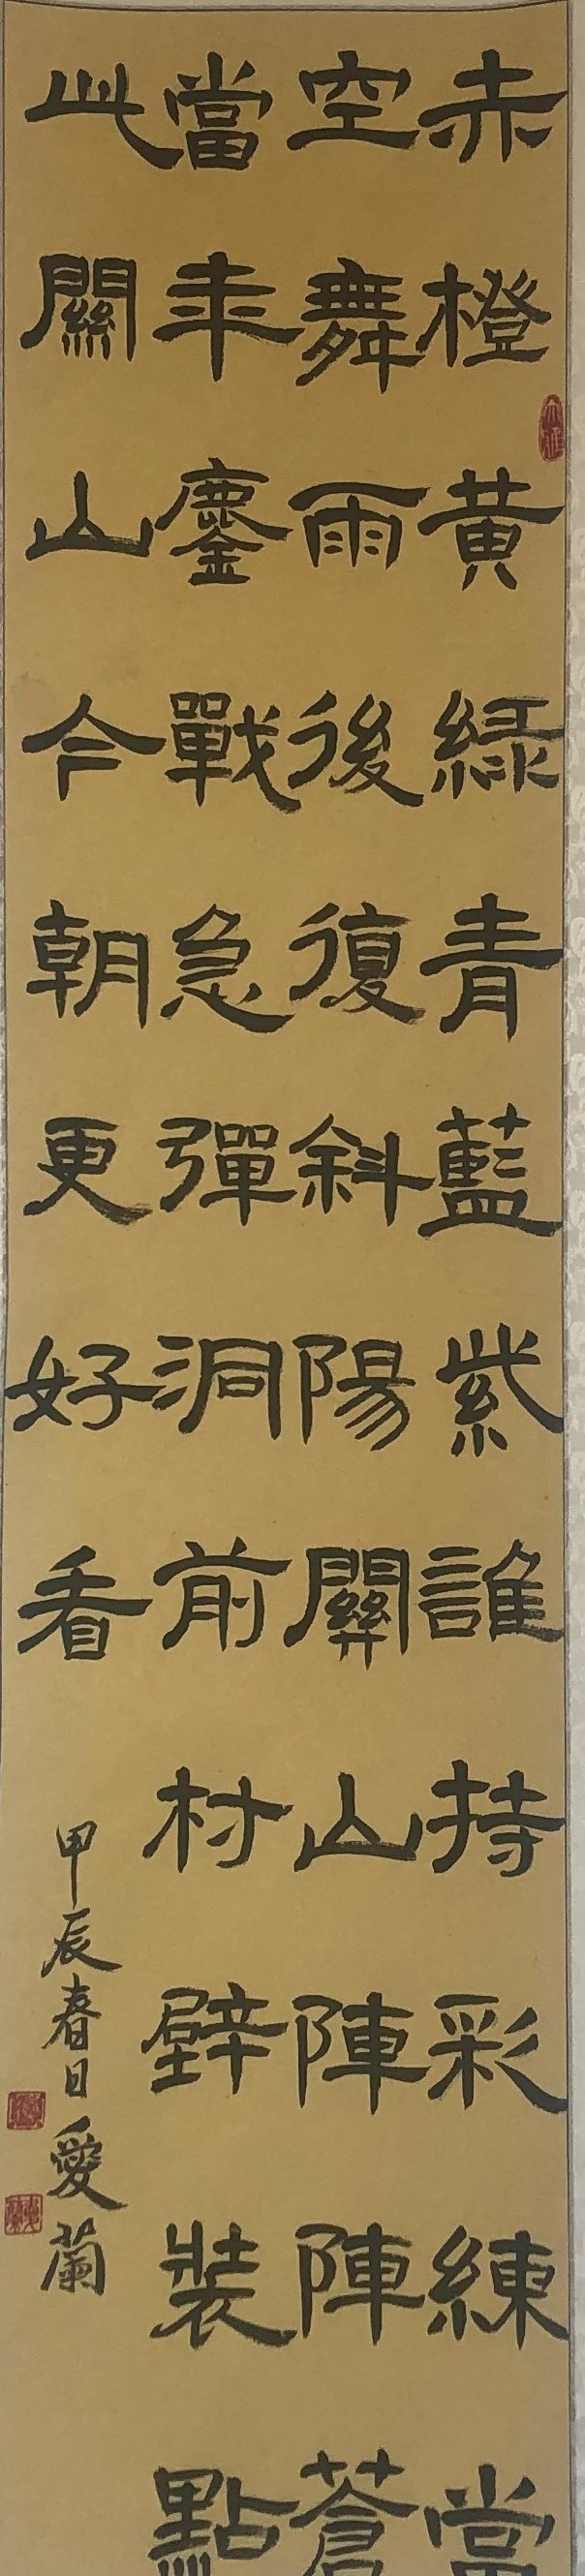 赤橙黄緑青藍紫誰持彩練當
空舞雨後復斜陽關山陣陣蒼
當年鏖戰急彈洞前村壁裝點
此關山今朝更好看
甲辰春日愛蘭